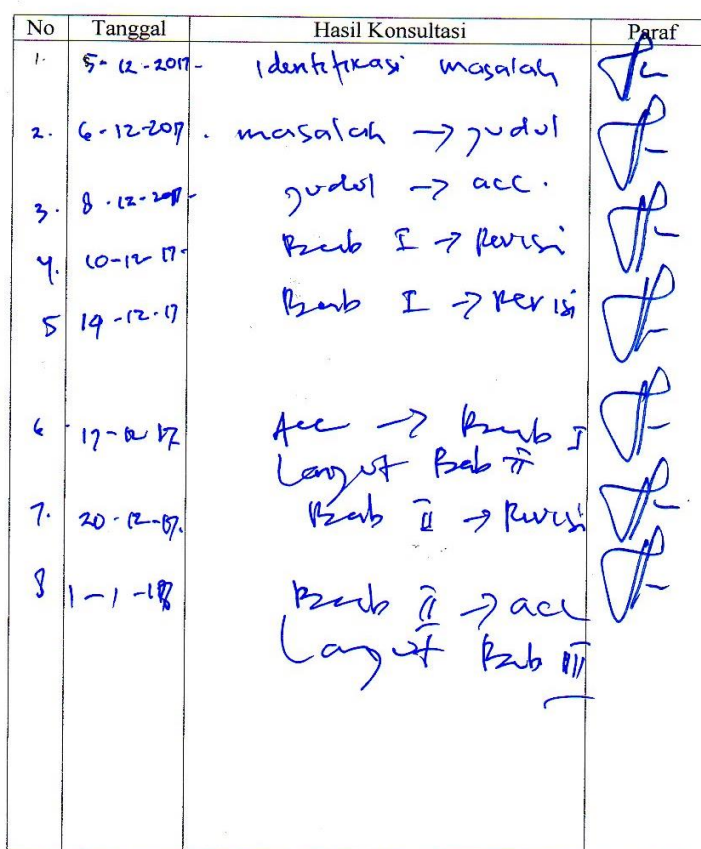 No Tanggal Hasil Konsultasi Paraf
1. 5-12-2017- Identifikasi masalah
2. 6-12-2017. masalah → judul
3. 8-12-2017- judul → acc.
4. 10-12-17- Bab I → Revisi
5 14-12-17 Bab I → Revisi
6 17-12-17 Acc → Bab I
Lanjut Bab II
7. 20-12-17. Bab II → Revisi
8 1-1-18 Bab II → acc
Lanjut Bab III